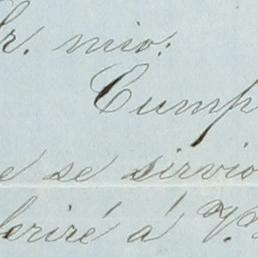 Sr. mio:
Cump
e se sirvio
feriré á V.